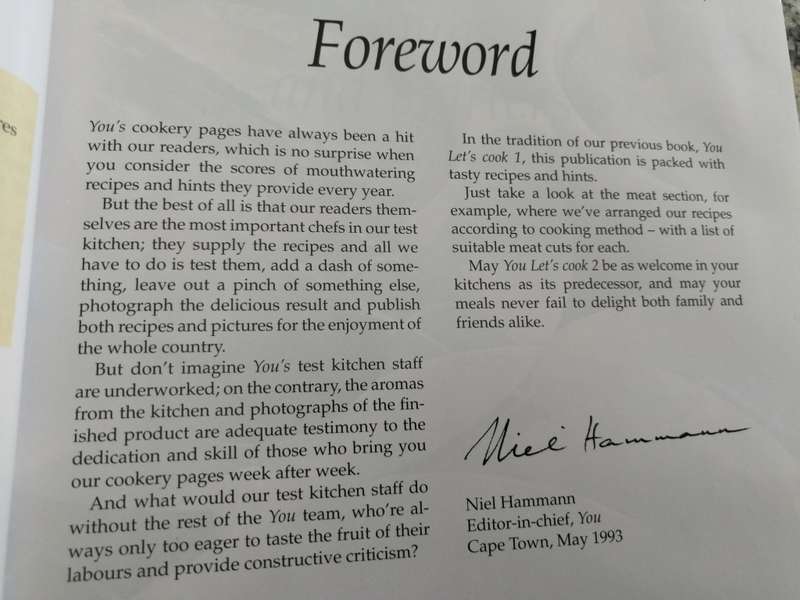 Foreword
You's cookery pages have always been a hit
with our readers, which is no surprise when
you consider the scores of mouthwatering
recipes and hints they provide every year.
But the best of all is that our readers them-
selves are the most important chefs in our test
kitchen; they supply the recipes and all we
have to do is test them, add a dash of some-
thing, leave out a pinch of something else,
photograph the delicious result and publish
both recipes and pictures for the enjoyment of
the whole country.
But don't imagine You's test kitchen staff
are underworked; on the contrary, the aromas
from the kitchen and photographs of the fin-
ished product are adequate testimony to the
dedication and skill of those who bring you
our cookery pages week after week.
And what would our test kitchen staff do
without the rest of the You team, who're al-
ways only too eager to taste the fruit of their
labours and provide constructive criticism?
In the tradition of our previous book, You
Let's cook 1, this publication is packed with
tasty recipes and hints.
Just take a look at the meat section, for
example, where we've arranged our recipes
according to cooking method – with a list of
suitable meat cuts for each.
May You Let's cook 2 be as welcome in your
kitchens as its predecessor, and may your
meals never fail to delight both family and
friends alike.
Niel Hammann
Niel Hammann
Editor-in-chief, You
Cape Town, May 1993